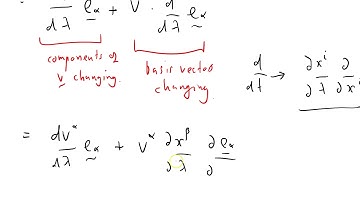 d/dλ e_α + v · d/dλ e_α
components of v changing.
basis vector changing
d/dt → ∂x^i/∂λ ∂/∂x^i
= dv^α/dλ e_α + v^α ∂x^β/∂λ ∂e_α/∂